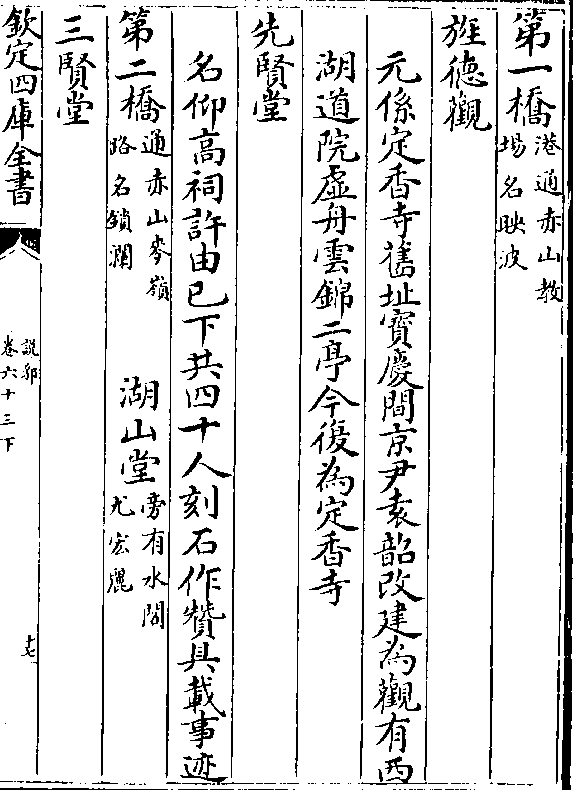 第一橋港通赤山教場名映波
旌德觀
元係定香寺舊址寶慶間京尹袁韶改建為觀有西
湖道院虛舟雲錦二亭今復為定香寺
先賢堂
名仰高祠許由已下共四十人刻石作贊具載事迹
第二橋通赤山麥嶺路名鎖瀾　湖山堂旁有水閣尤宏麗
三賢堂
欽定四庫全書
說郛
卷六十三下
十七